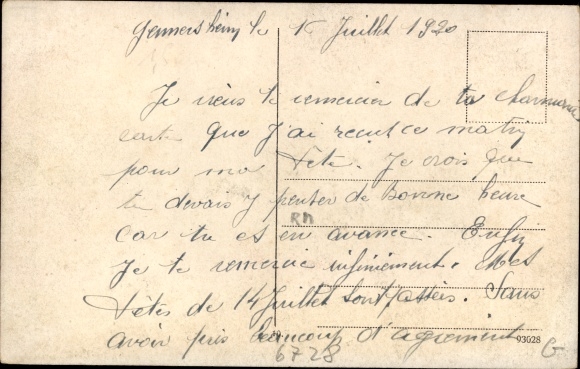 Germersheim le 15 Juillet 1920
Je viens te remercier de ta charmante
carte que j'ai recut ce matin
pour ma Fête. Je crois que
tu devais y penser de bonne heure
car tu es en avance. Enfin
Je te remercie infiniement. Les
Fêtes de 14 Juillet sont passées. Sans
avoir pris beaucoup d'agrement
Rh
6728
93028
G